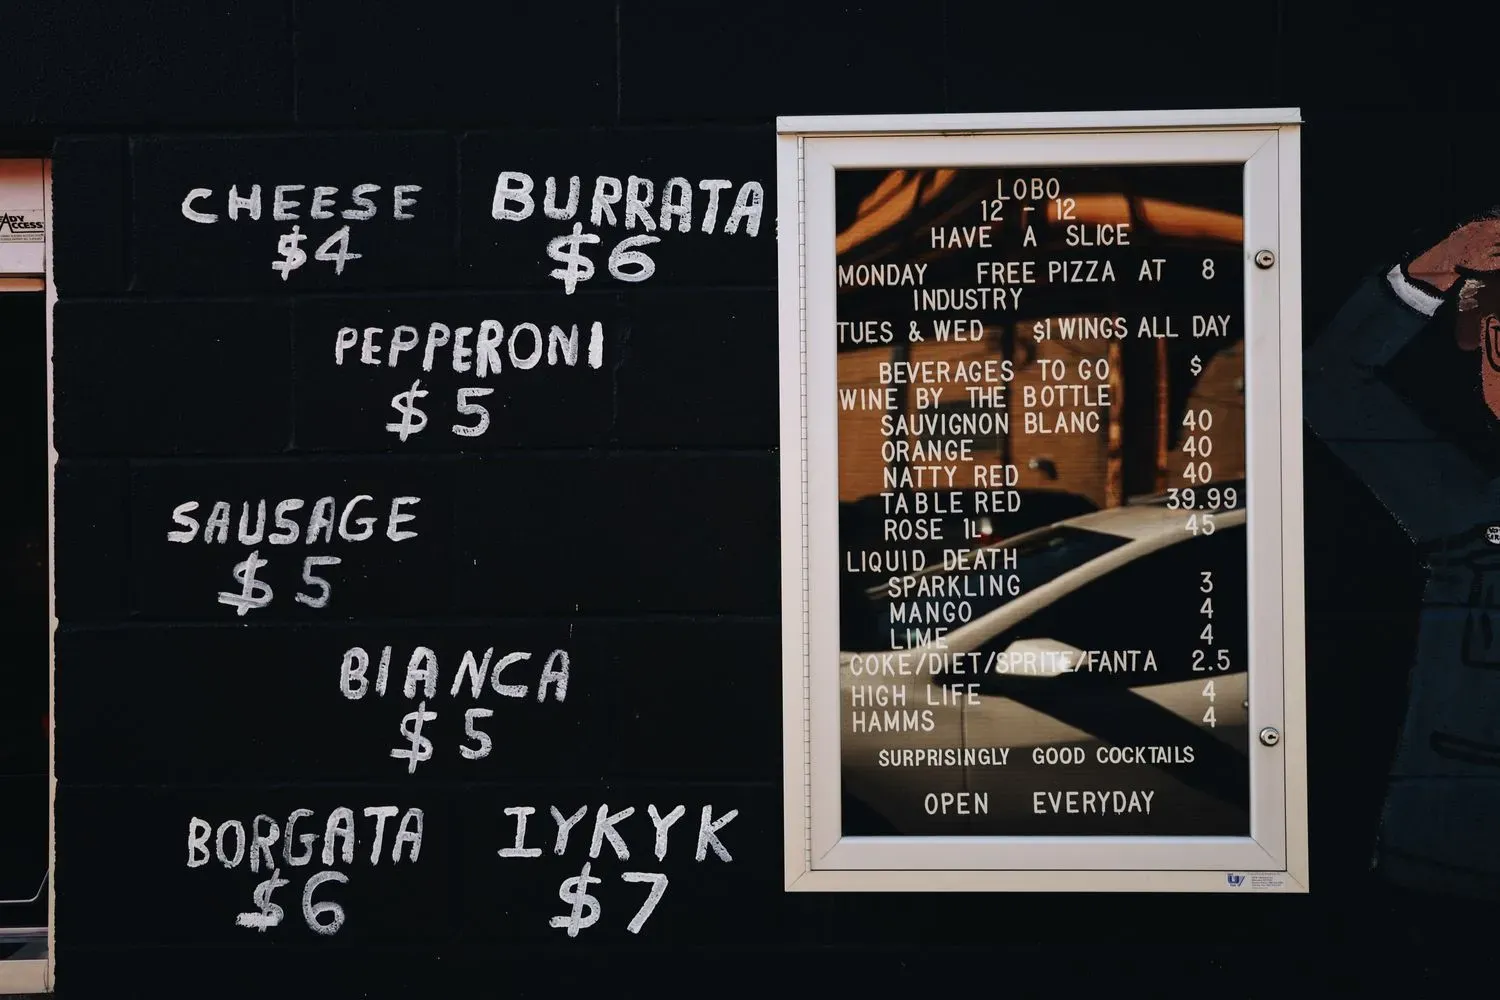 CHEESE
$4
BURRATA
$6
PEPPERONI
$5
SAUSAGE
$5
BIANCA
$5
BORGATA
$6
IYKYK
$7
LOBO
12 - 12
HAVE A SLICE
MONDAY FREE PIZZA AT 8
INDUSTRY
TUES & WED $1 WINGS ALL DAY
BEVERAGES TO GO $
WINE BY THE BOTTLE
SAUVIGNON BLANC 40
ORANGE 40
NATTY RED 40
TABLE RED 39.99
ROSE 1L 45
LIQUID DEATH
SPARKLING 3
MANGO 4
LIME 4
COKE/DIET/SPRITE/FANTA 2.5
HIGH LIFE 4
HAMMS 4
SURPRISINGLY GOOD COCKTAILS
OPEN EVERYDAY
ACCESS